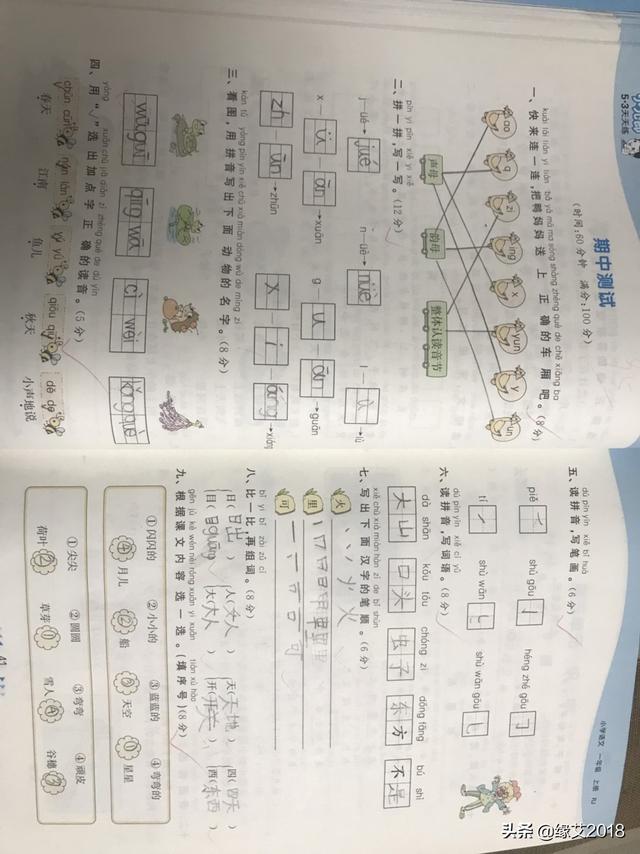 5·3天天练
期中测试
(时间:60分钟 满分:100分)
kuài lái lián yì lián bǎ yā mā ma sòng shàng zhèng què de chē xiāng ba
一、快来连一连,把鸭妈妈送上正确的车厢吧。(8分)
ao q zi ing x yun y un
声母 韵母 整体认读音节
pīn yi pīn xiě yi xiě
二、拼一拼,写一写。(12分)
j—üé→jué n—üè→nüè l—ǜ→lǜ
x—ü—ān→xuān g—u—ān→guān
zh—ǔn→zhǔn x—i—
kàn tú yòng pīn yīn xiě chū xià miàn dòng wù de míng zi
三、看图,用拼音写出下面动物的名字。(8分)
wūguī qīng wā cì wèi kǒng què
yòng xuǎn chū jiā diǎn zì zhèng què de dú yīn
四、用“√”选出加点字正确的读音。(5分)
chūn cūn nán lán yí yú qiū qū dè de
春天 江南 鱼儿 秋天 小声地说
dú pīn yīn xiě bǐ huà
五、读拼音,写笔画。(6分)
piě shù gōu héng zhé gōu
tí shù wān shù wān gōu
dú pīn yīn xiě cí yǔ
六、读拼音,写词语。(8分)
dà shān kǒu tóu chóng zi dōng fāng bú shì
大山 口头 虫子 东方 不是
xiě chū xià miàn hàn zì de bǐ shùn
七、写出下面汉字的笔顺。(6分)
火
里
可
bǐ yi bǐ zài zǔ cí
八、比一比,再组词。(8分)
日(日出) 人(大人) 天(天地) 四(四天)
目(目guāng) 大(大人) 开(开车) 西(东西)
gēn jù kè wén nèi róng xuǎn yi xuǎn tián xù hào
九、根据课文内容选一选。(填序号)(8分)
①闪闪的 ②小小的 ③蓝蓝的 ④弯弯的
④月儿 ②船 ③天空 ①星星
①尖尖 ②圆圆 ③弯弯 ④顽皮
荷叶② 草芽① 雪人④ 谷穗③
小学语文 一年级 上册 RJ
41
头条 @缘艾2018